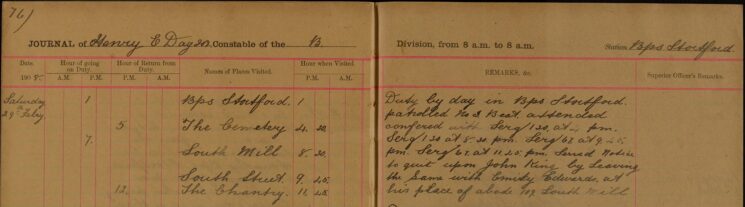 76)
JOURNAL of Henry E Day Constable of the B. Division, from 8 a.m. to 8 a.m. Station Bps Stortford.
Date 190 Hour of going on Duty. Hour of Return from Duty. Names of Places Visited. Hour when Visited REMARKS, &c. Superior Officer's Remarks.
A.M. P.M. A.M. P.M. P.M. A.M.
Saturday 1 Bps Stortford 1 Duty by day in Bps Stortford.
29th Feby patrolled No 3 Beat. attended
5 The Cemetery 4. 30 confered with Serg/120 at 4 pm.
7. Serg/120 at 8.30 pm. Serg/67 at 9.45
South Mill 8. 30 pm. Serg 67 at 11.45 pm. Served Notice
to quit upon John King by Leaving
South Street 9. 45 the Same with Emily Edwards, at
12. The Chantry 11. 45 his place of abode South Mill